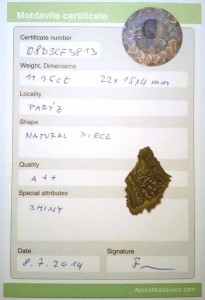 Moldavite certificate
Certificate number
08D3CF3813
Weight, Dimensions
11.95ct 22x15x4 mm
Locality
PARÝZ
Shape
NATURAL PIECE
Quality
A++
Special attributes
SHINY
Date
Signature
8.7.2014
AboutMoldavites.com